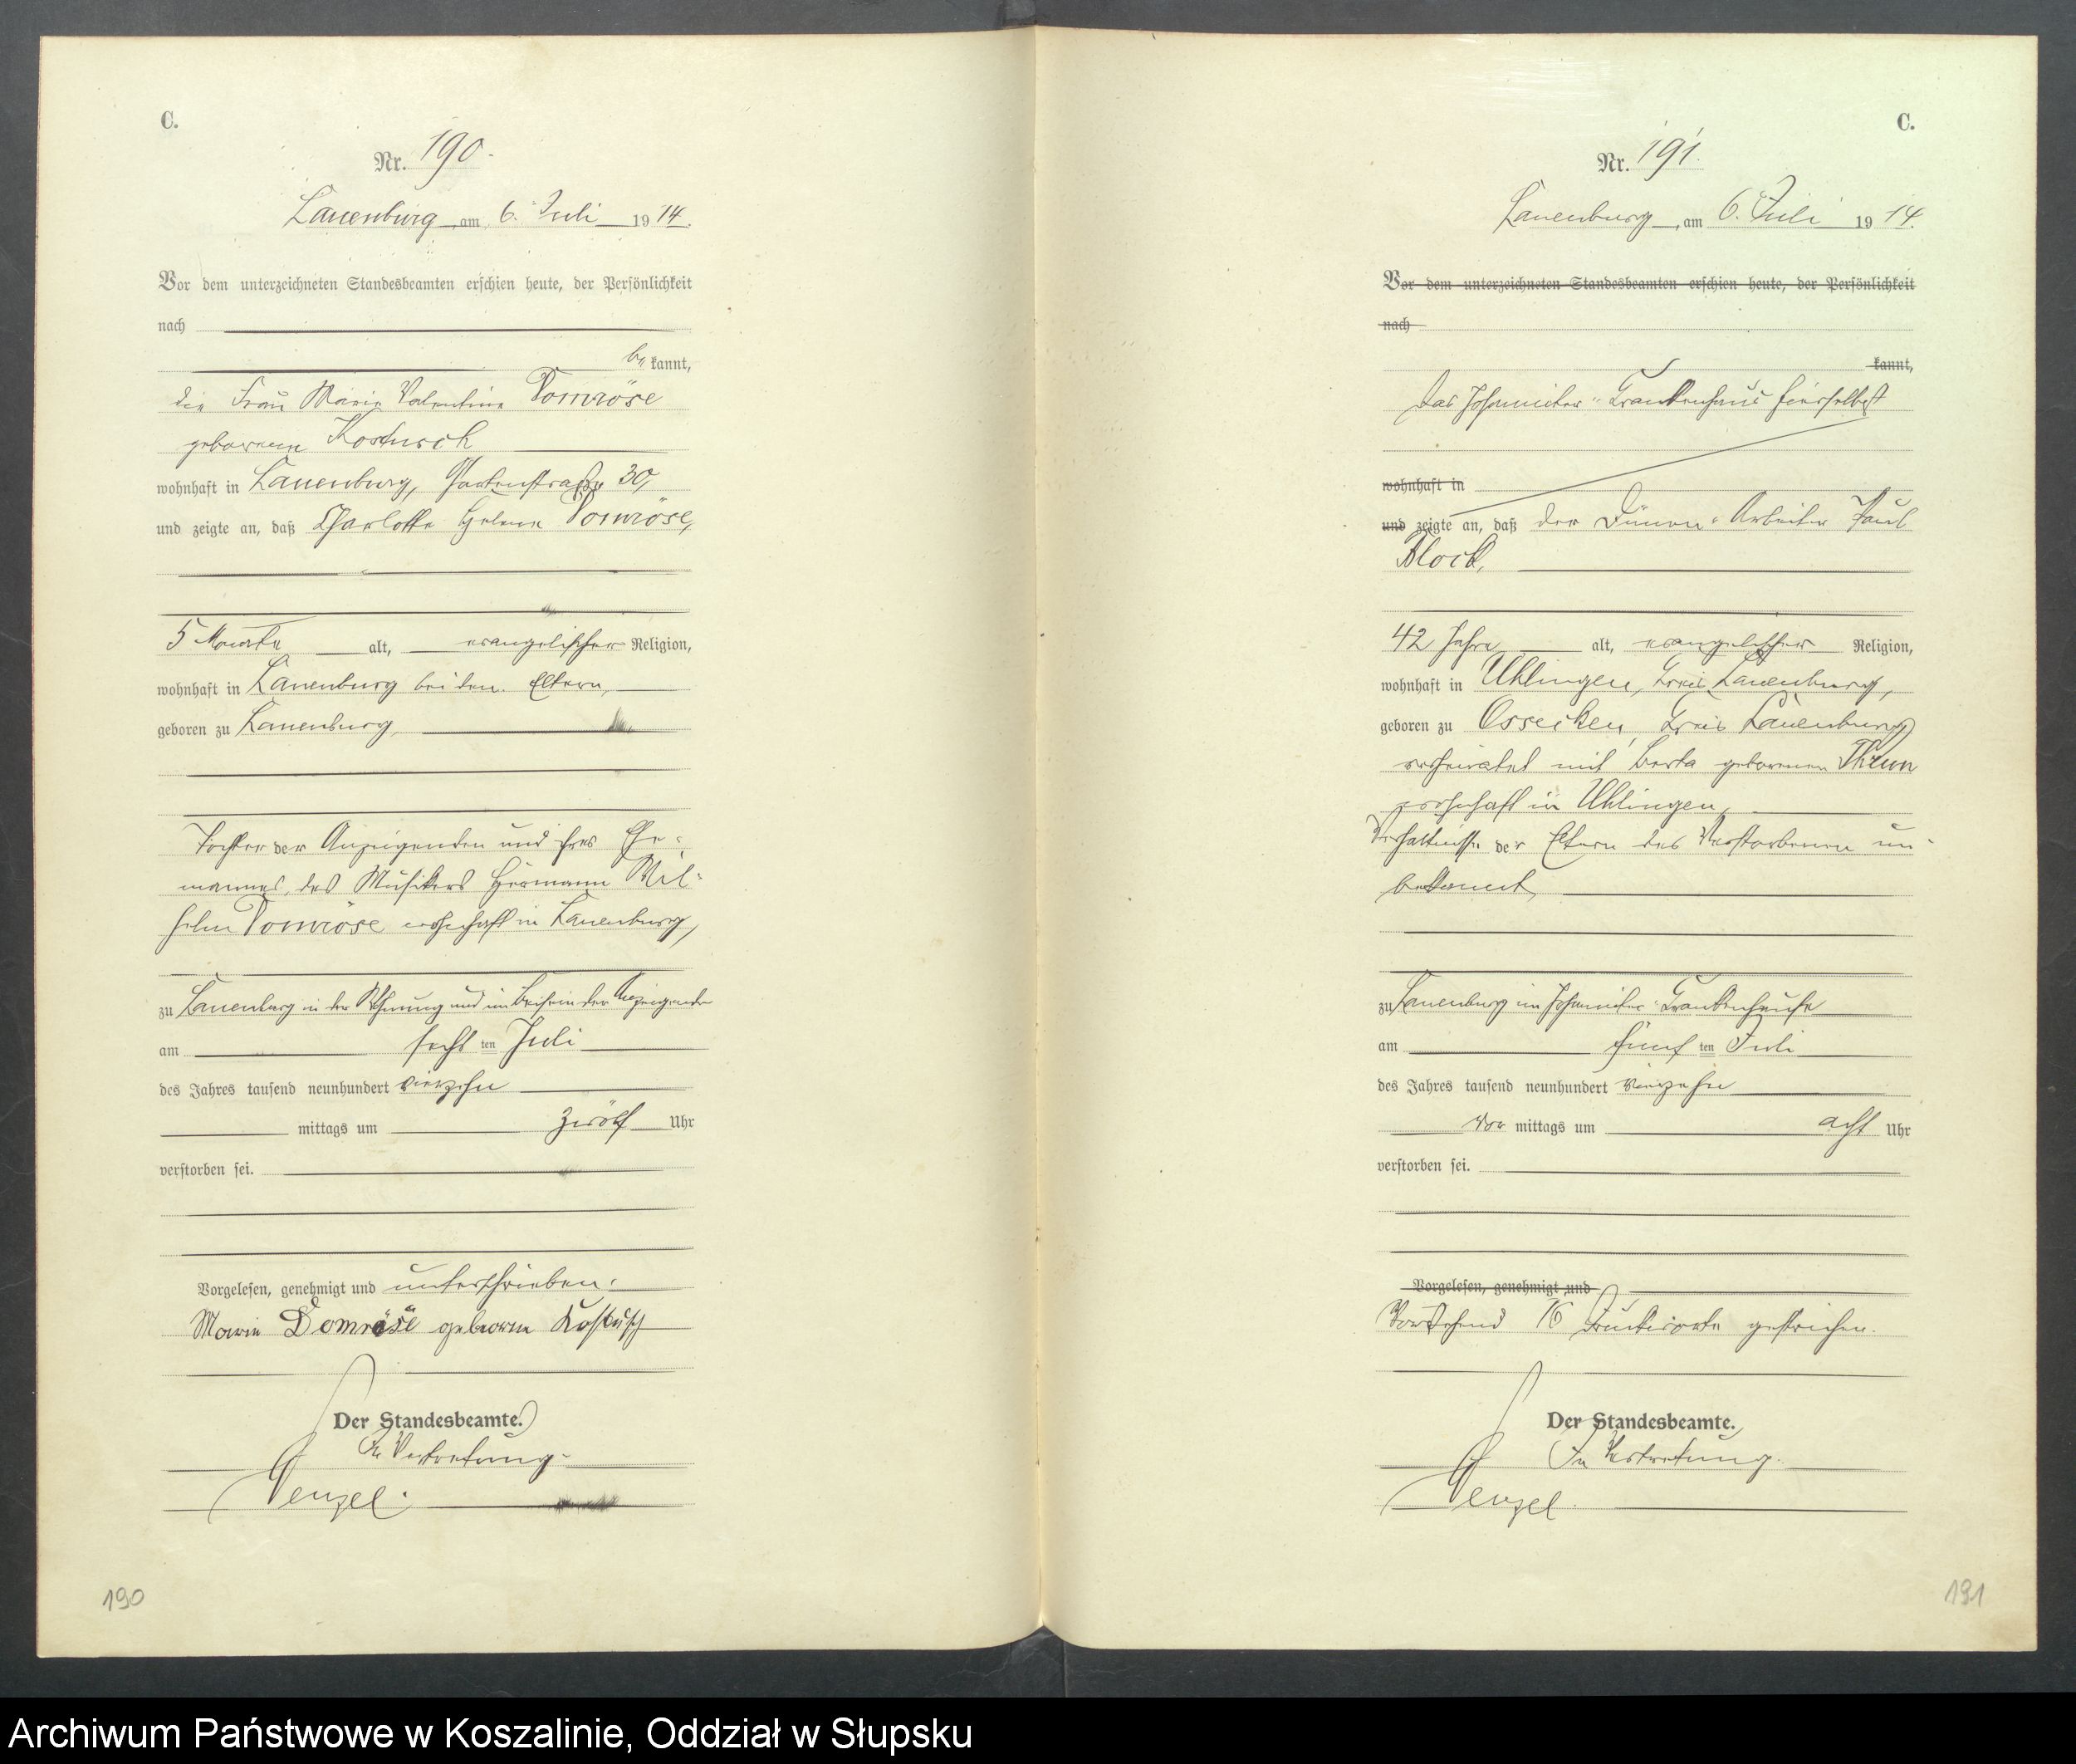 C.
Nr. 190.
Lauenburg, am 6. Juli 1914.
Vor dem unterzeichneten Standesbeamten erschien heute, der Persönlichkeit
nach
be kannt,
die Frau Marie Valentine Domröse
geborene Kostusch
wohnhaft in Lauenburg, 30,
und zeigte an, daß Charlotte Helene Domröse,
5 Monate alt, evangelischer Religion,
wohnhaft in Lauenburg bei den Eltern,
geboren zu Lauenburg,
Tochter der Anzeigenden und ihres Ehe-
mannes, des Musikers Hermann Wil-
helm Domröse wohnhaft in Lauenburg,
zu Lauenburg in der Wohnung und im Beisein der Anzeigenden
am sechs ten Juli
des Jahres tausend neunhundert vierzehn
mittags um zwölf Uhr
verstorben sei.
Vorgelesen, genehmigt und unterschrieben.
Marie Domröse geborene Kostusch
Der Standesbeamte.
In Vertretung.
Wenzel.
190
C.
Nr. 191.
Lauenburg, am 6. Juli 1914.
Vor dem unterzeichneten Standesbeamten erschien heute, der Persönlichkeit
nach
kannt,
Das Johanniter-Krankenhaus hierselbst
wohnhaft in
und zeigte an, daß der Dünen-Arbeiter Paul
Block,
42 Jahre alt, evangelischer Religion,
wohnhaft in Uhlingen, Kreis Lauenburg,
geboren zu Ossecken, Kreis Lauenburg,
verheiratet mit Berta geborenen Thrun
wohnhaft in Uhlingen,
Verhältnisse der Eltern des Verstorbenen un-
bekannt,
zu Lauenburg im Johanniter-Krankenhause
am fünf ten Juli
des Jahres tausend neunhundert vierzehn
vor mittags um acht Uhr
verstorben sei.
Vorgelesen, genehmigt und
Vorstehend 16 Druckworte gestrichen.
Der Standesbeamte.
In Vertretung.
Wenzel.
191
Archiwum Państwowe w Koszalinie, Oddział w Słupsku